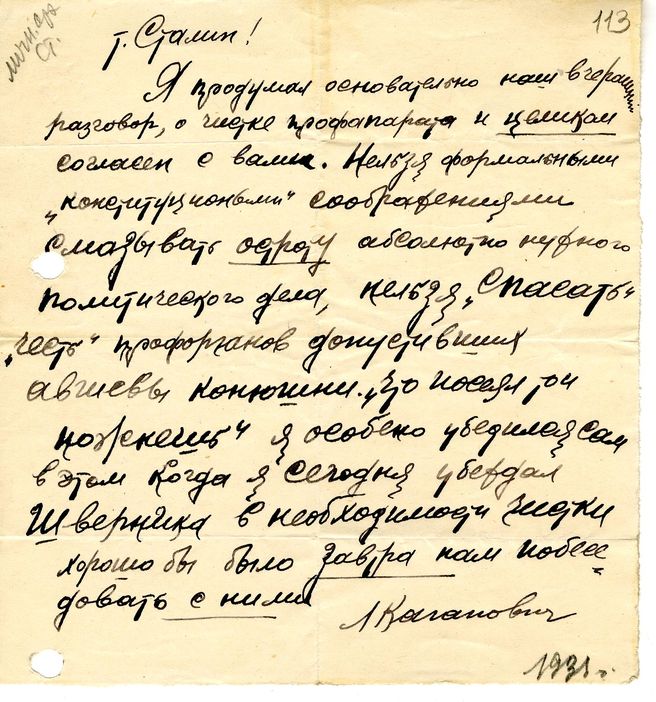 личн. арх.
Ст.
113
т. Сталин!
Я продумал основательно наш вчерашний
разговор, о чистке профапарата и целиком
согласен с вами. Нельзя формальными
„конституционными" соображениями
смазывать остроту абсолютно нужного
политического дела, нельзя „спасать"
„честь" профорганов допустивших
авгиевы конюшни. „Что посеял, то и
пожнешь" я особено убедился сам
в этом когда я сегодня убеждал
Шверника в необходимости чистки
хорошо бы было завтра нам побесе=
довать с ними
Л Каганович
193 г.